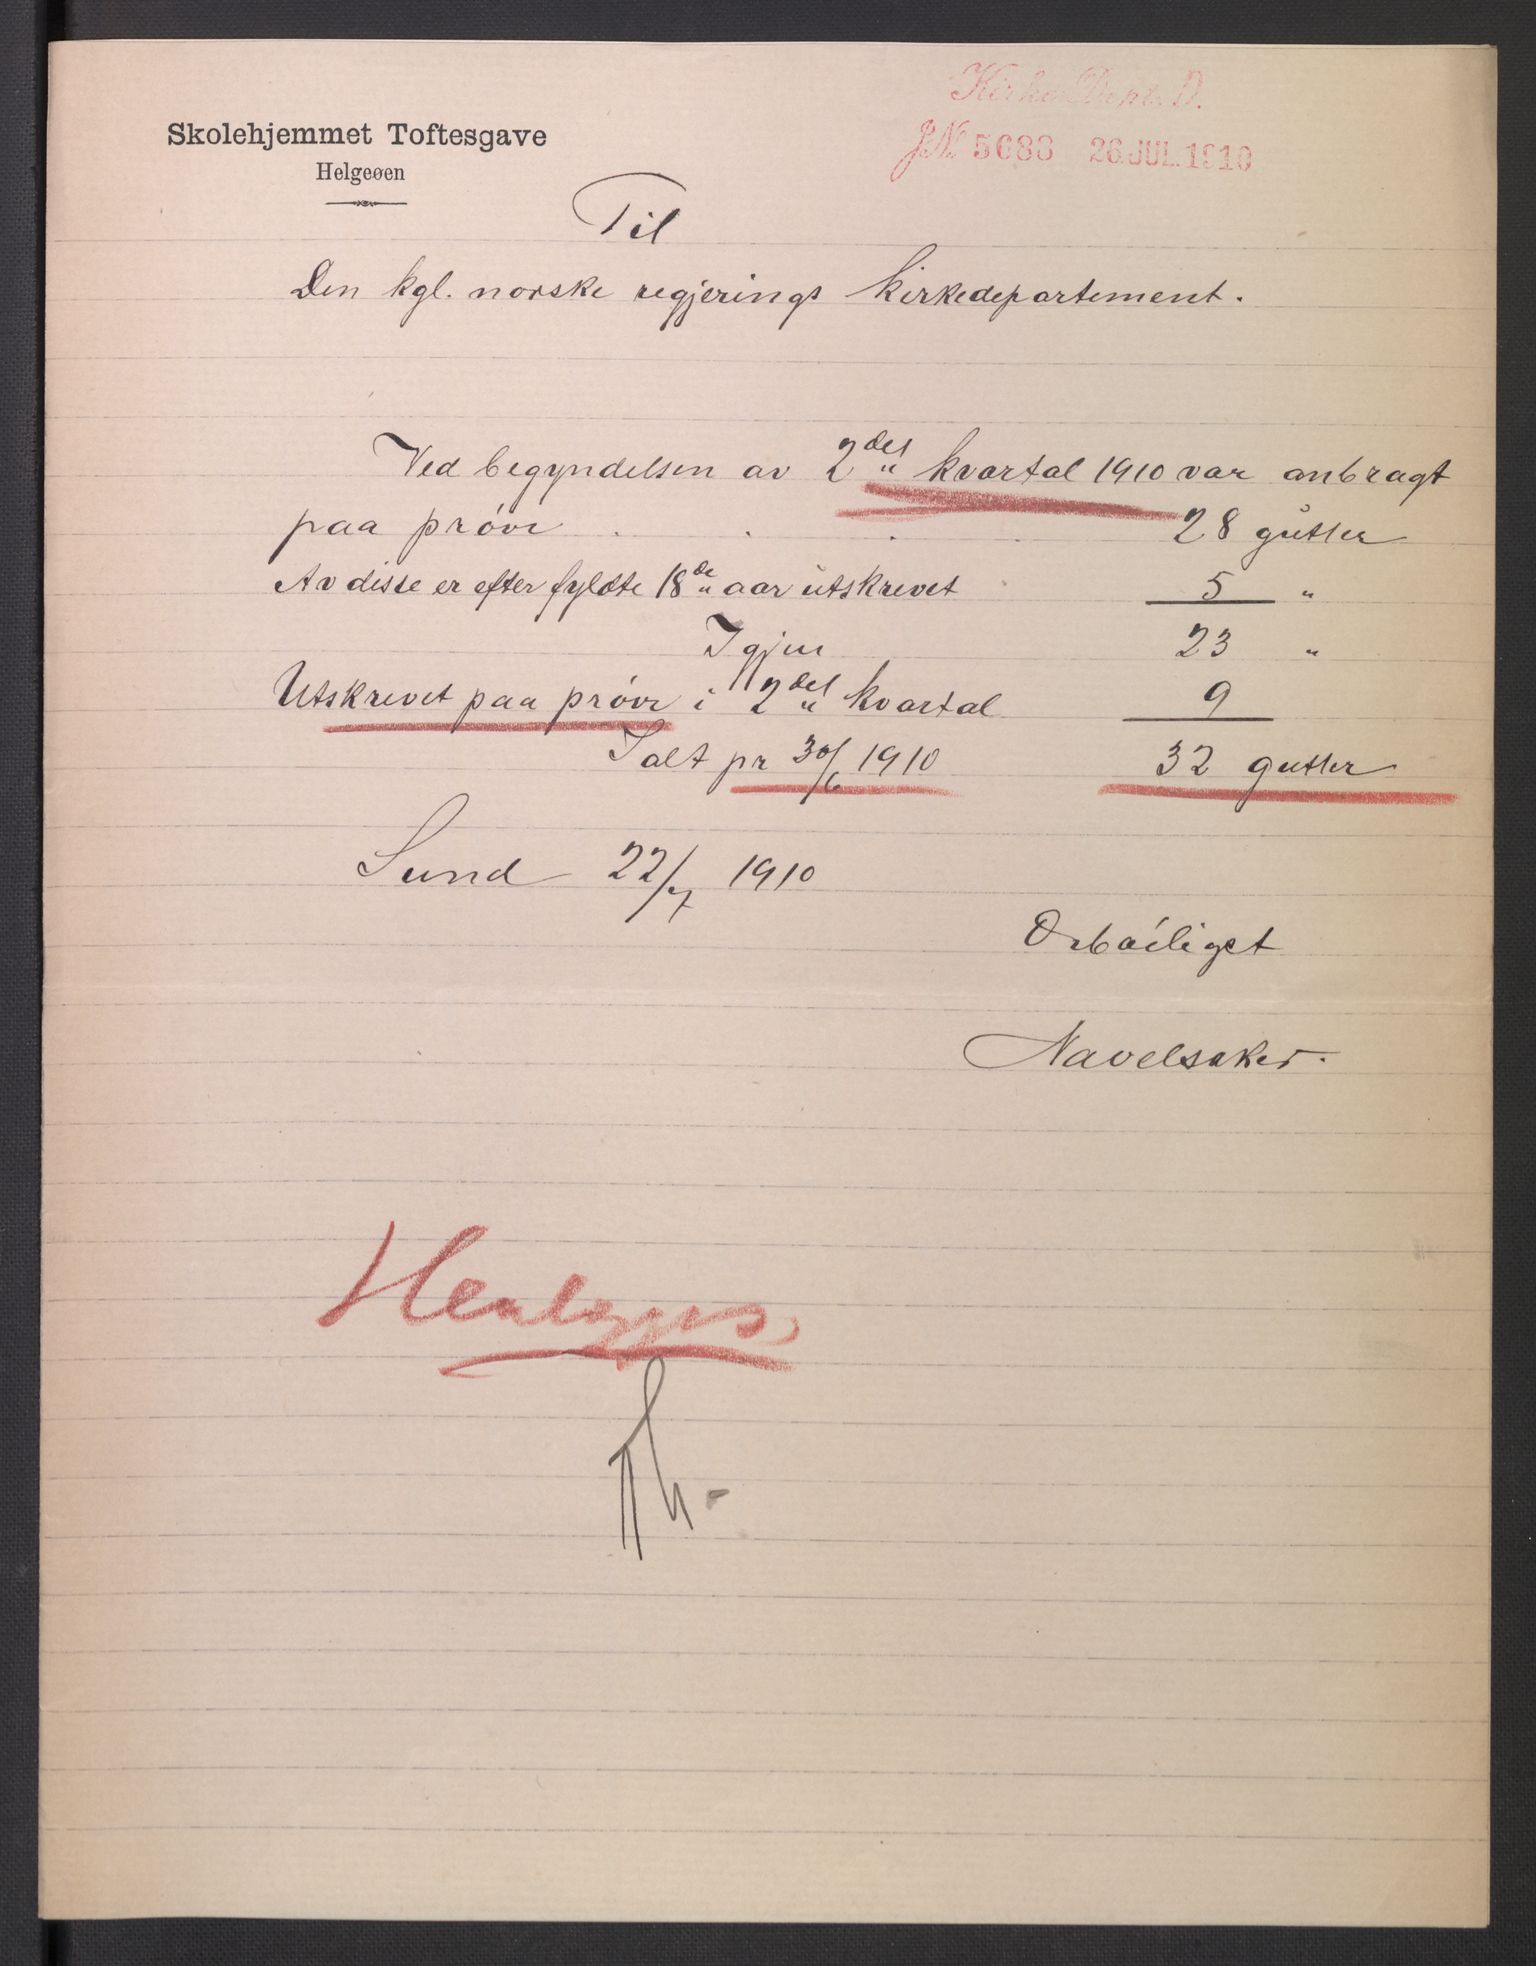 Kirke Dept. D.
Skolehjemmet Toftesgave
JN 5688 26 JUL. 1910
Helgeøen
Til
Den kgl. norske regjerings kirkedepartement.
Ved begyndelsen av 2det kvartal 1910 var anbragt
paa prøve . . . . 28 gutter
Av disse er efter fyldte 18de aar utskrevet 5 "
Igjen 23 "
Utskrevet paa prøve i 2det kvartal 9
Ialt pr 30/6 1910 32 gutter
Sund 22/7 1910
Ærbødigst
Navelsaker.
Henlægges.